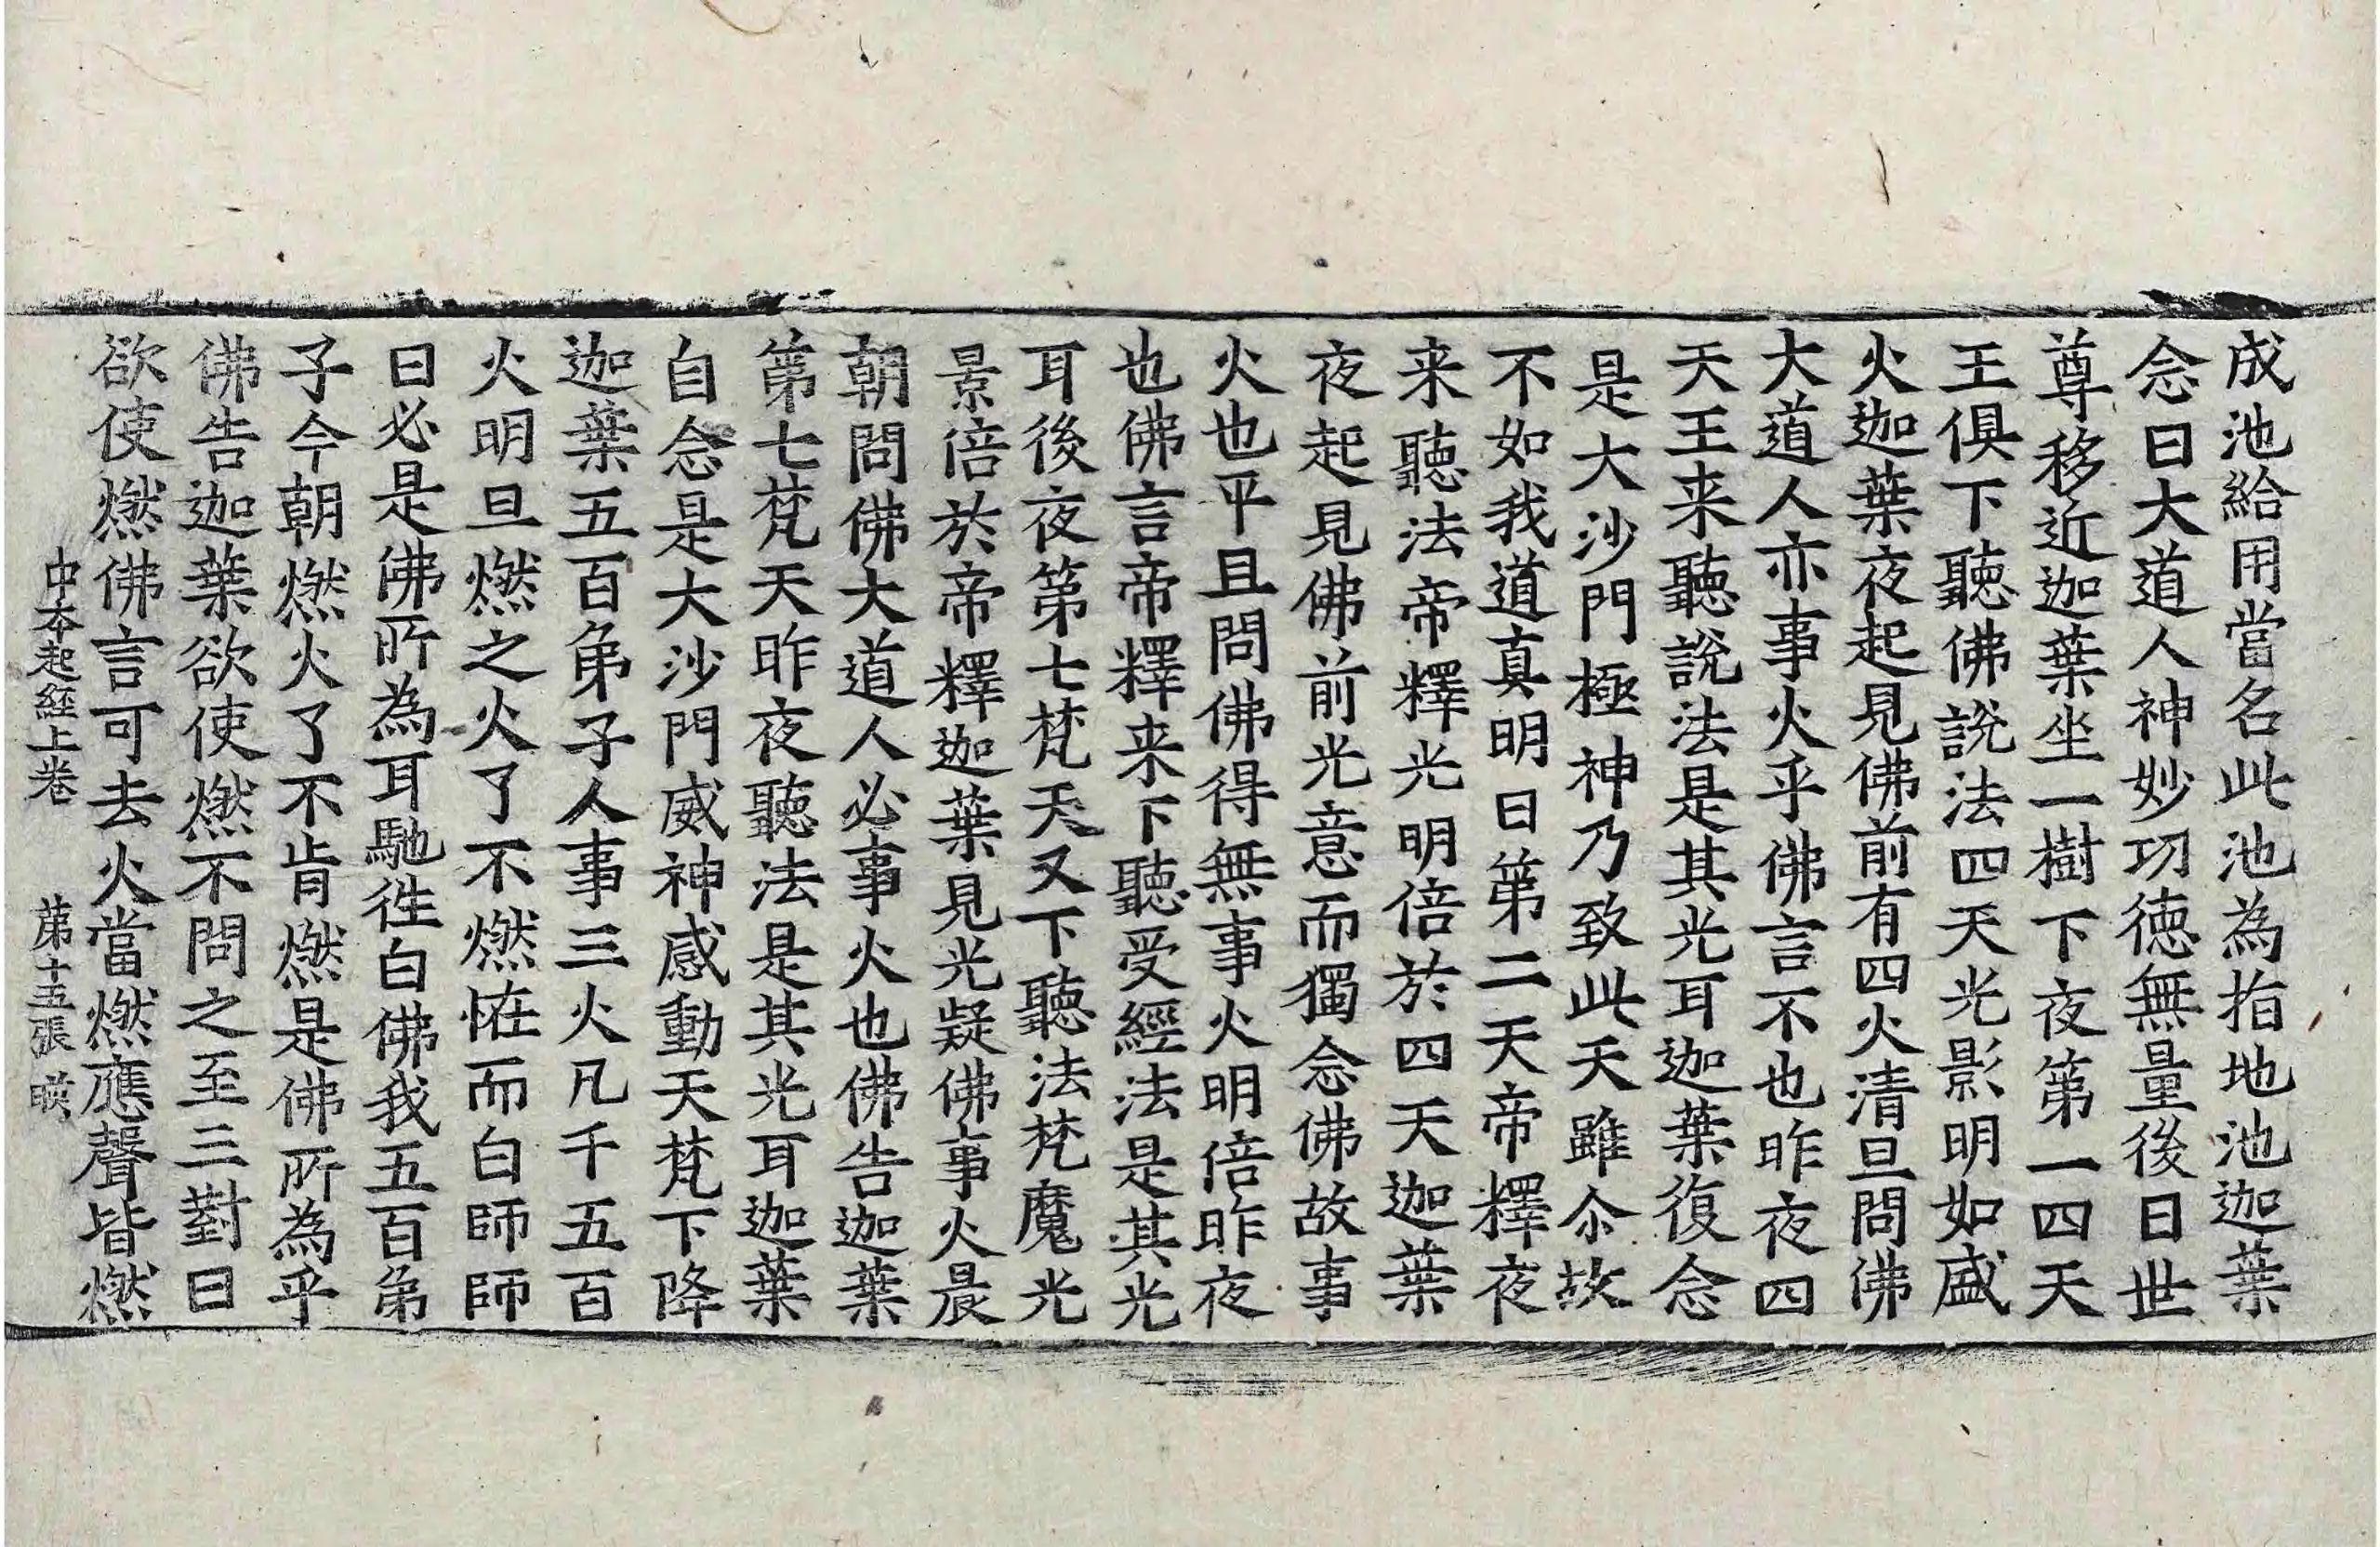 成池給用當名此池為指地池迦葉
念曰大道人神妙功徳無量後日世
尊移近迦葉坐一樹下夜第一四天
王俱下聽佛說法四天光影明如盛
火迦葉夜起見佛前有四火清旦問佛
大道人亦事火乎佛言不也昨夜四
天王来聽說法是其光耳迦葉復念
是大沙門極神乃致此天雖尒故
不如我道真明日第二天帝釋夜
来聽法帝釋光明倍於四天迦葉
夜起見佛前光意而獨念佛故事
火也平旦問佛得無事火明倍昨夜
也佛言帝釋来下聽受經法是其光
耳後夜第七梵天又下聽法梵魔光
景倍於帝釋迦葉見光疑佛事火晨
朝問佛大道人必事火也佛告迦葉
第七梵天昨夜聽法是其光耳迦葉
自念是大沙門威神感動天梵下降
迦葉五百弟子人事三火凡千五百
火明旦燃之火了不燃恠而白師師
曰必是佛所為耳馳徃白佛我五百弟
子今朝燃火了不肯燃是佛所為乎
佛告迦葉欲使燃不問之至三對曰
欲使燃佛言可去火當燃應聲皆燃
中本起經上卷 第十五張 暎